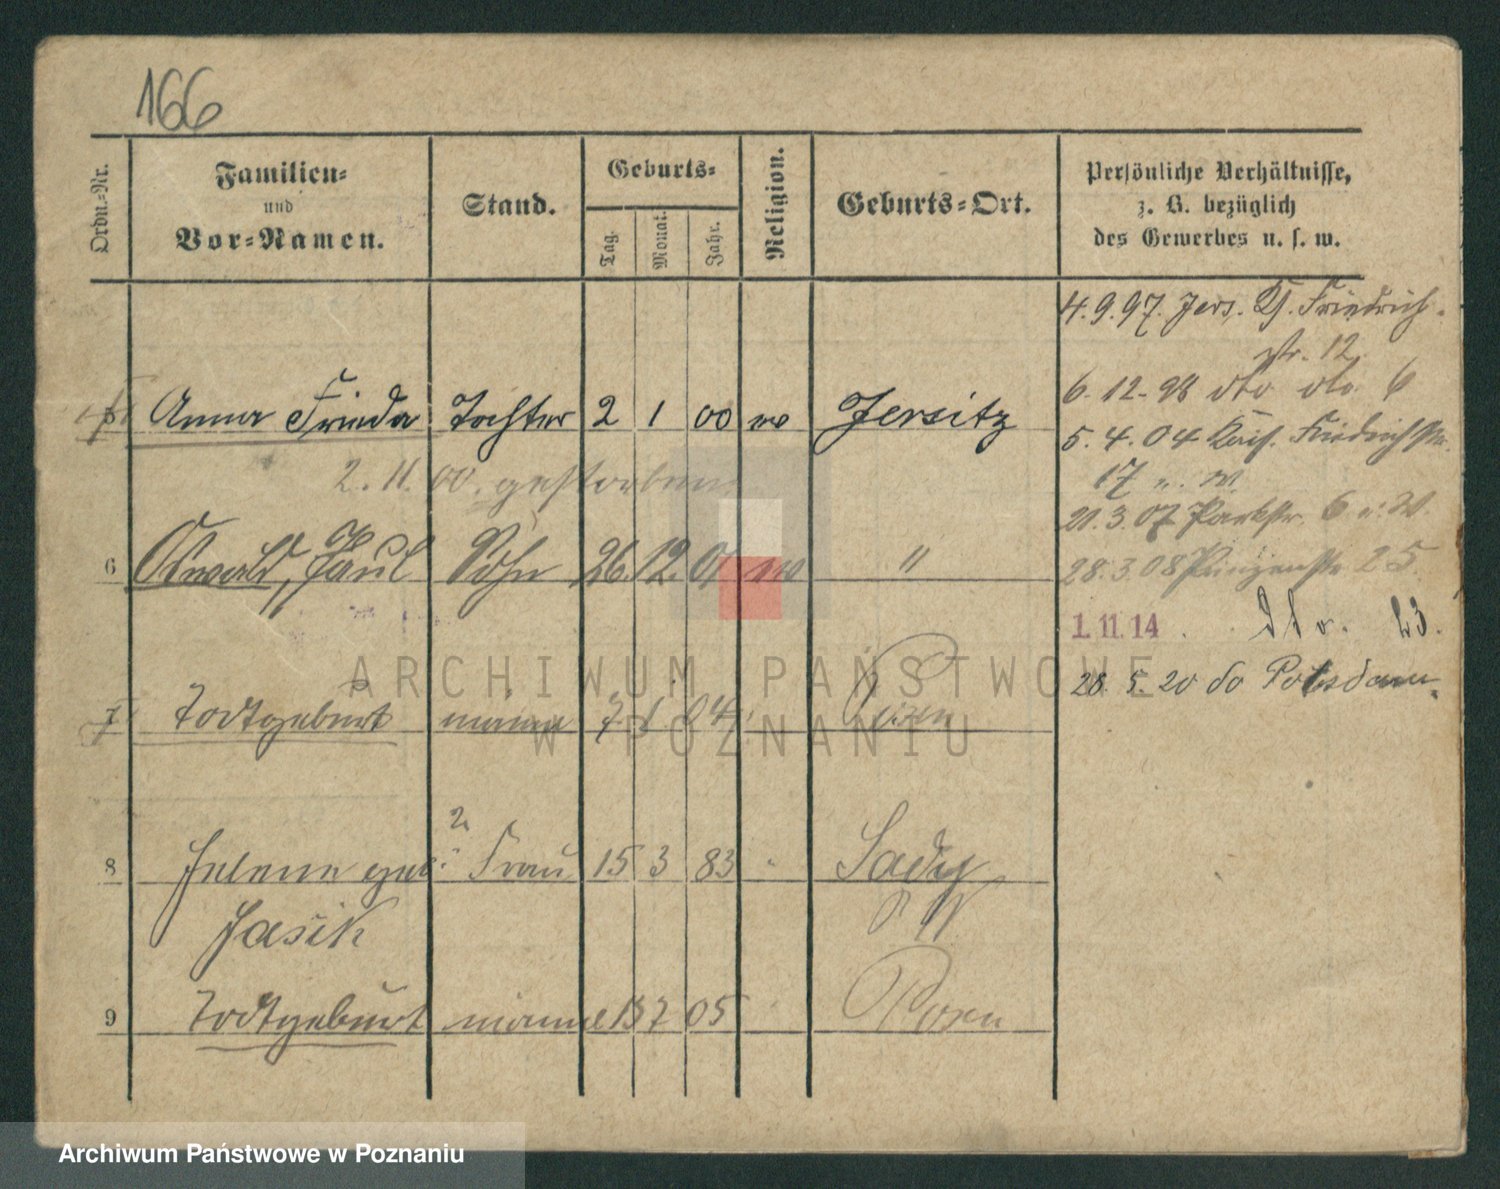 166
Ordn.-Nr.
Familien-
und
Vor-Namen.
Stand.
Geburts-
Tag.
Monat.
Jahr.
Religion.
Geburts-Ort.
Persönliche Verhältnisse,
z. B. bezüglich
des Gewerbes u. s. w.
4.9.97. Jers. K. Friedrich-
str. 12
6.12.98 dto dto. 6
5.4.04 Kais. Friedrichstr.
17 u. W.
21.3.07 Parkstr. 6 u. W.
28.3.08 Prinzenstr 25.
1. 11. 14 . Dto. 23.
28.5.20 do Potsdam
Anna Frieda Tochter 2 1 00 Jersitz
2.11.00. gestorben
6 Oswald, Paul Sohn 26. 12. 01 "
7 Todtgeburt männl 7 1 04 Posen
8 Helene geb. 2. Frau 15 3 83 " Sady
P W
Jasik
9 Todtgeburt männl 13 7 05 Posen
ARCHIWUM PAŃSTWOWE
W POZNANIU
Archiwum Państwowe w Poznaniu